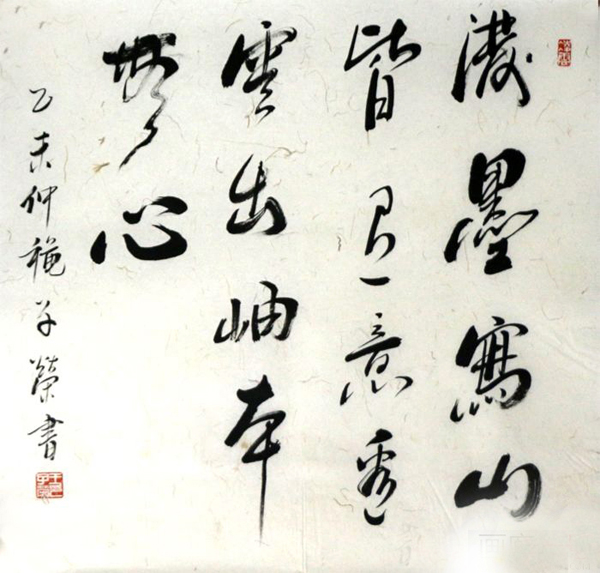 潑墨寫山
皆意
雲出岫本
無心
乙未仲穐子榮書